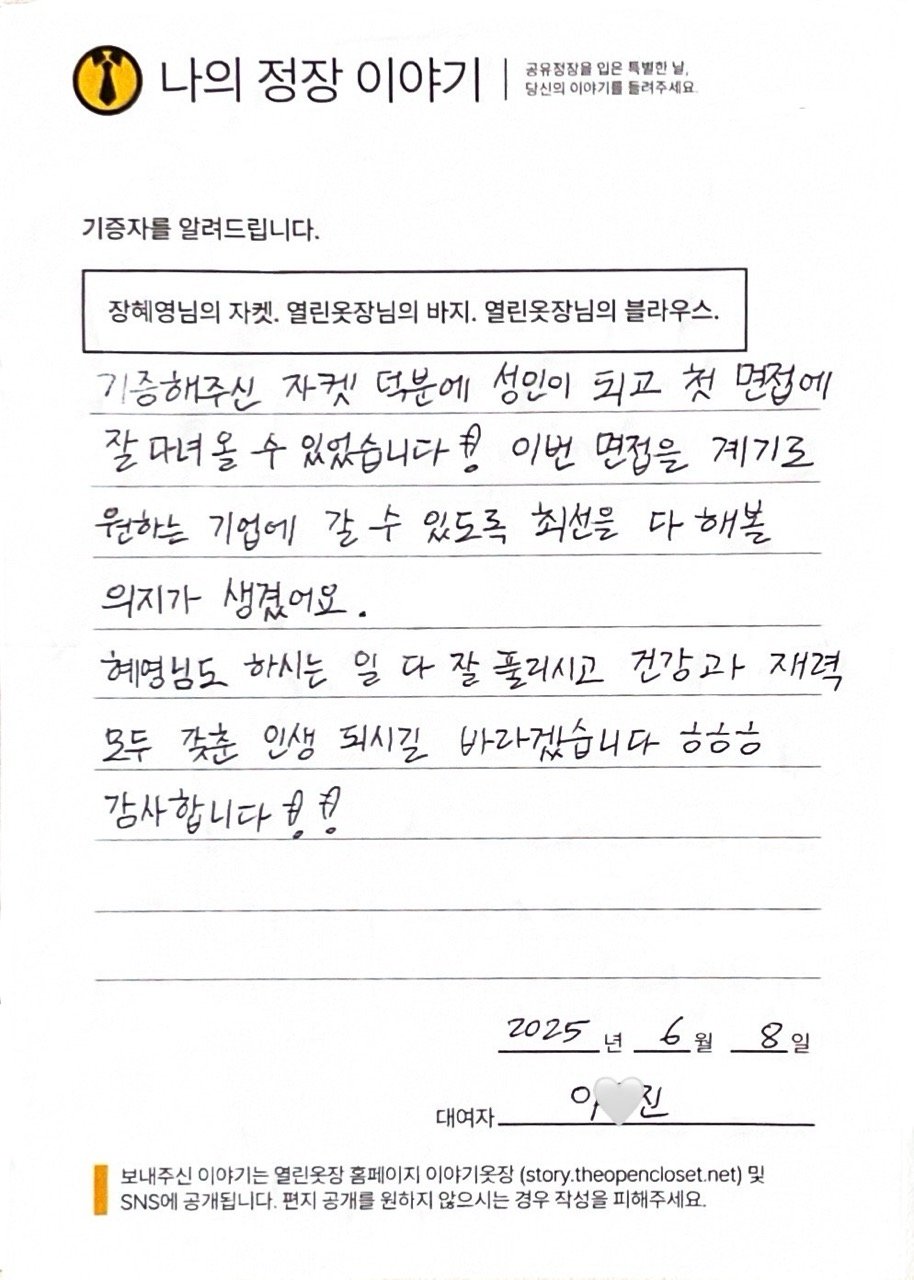 나의 정장 이야기
공유정장을 입은 특별한 날,
당신의 이야기를 들려주세요.
기증자를 알려드립니다.
장혜영님의 자켓. 열린옷장님의 바지. 열린옷장님의 블라우스.
기증해주신 자켓 덕분에 성인이 되고 첫 면접에
잘 다녀올 수 있었습니다! 이번 면접을 계기로
원하는 기업에 갈 수 있도록 최선을 다 해볼
의지가 생겼어요.
혜영님도 하시는 일 다 잘 풀리시고 건강과 재력
모두 갖춘 인생 되시길 바라겠습니다 ㅎㅎㅎ
감사합니다!!
2025년 6월 8일
대여자 이 진
보내주신 이야기는 열린옷장 홈페이지 이야기옷장 (story.theopencloset.net) 및
SNS에 공개됩니다. 편지 공개를 원하지 않으시는 경우 작성을 피해주세요.